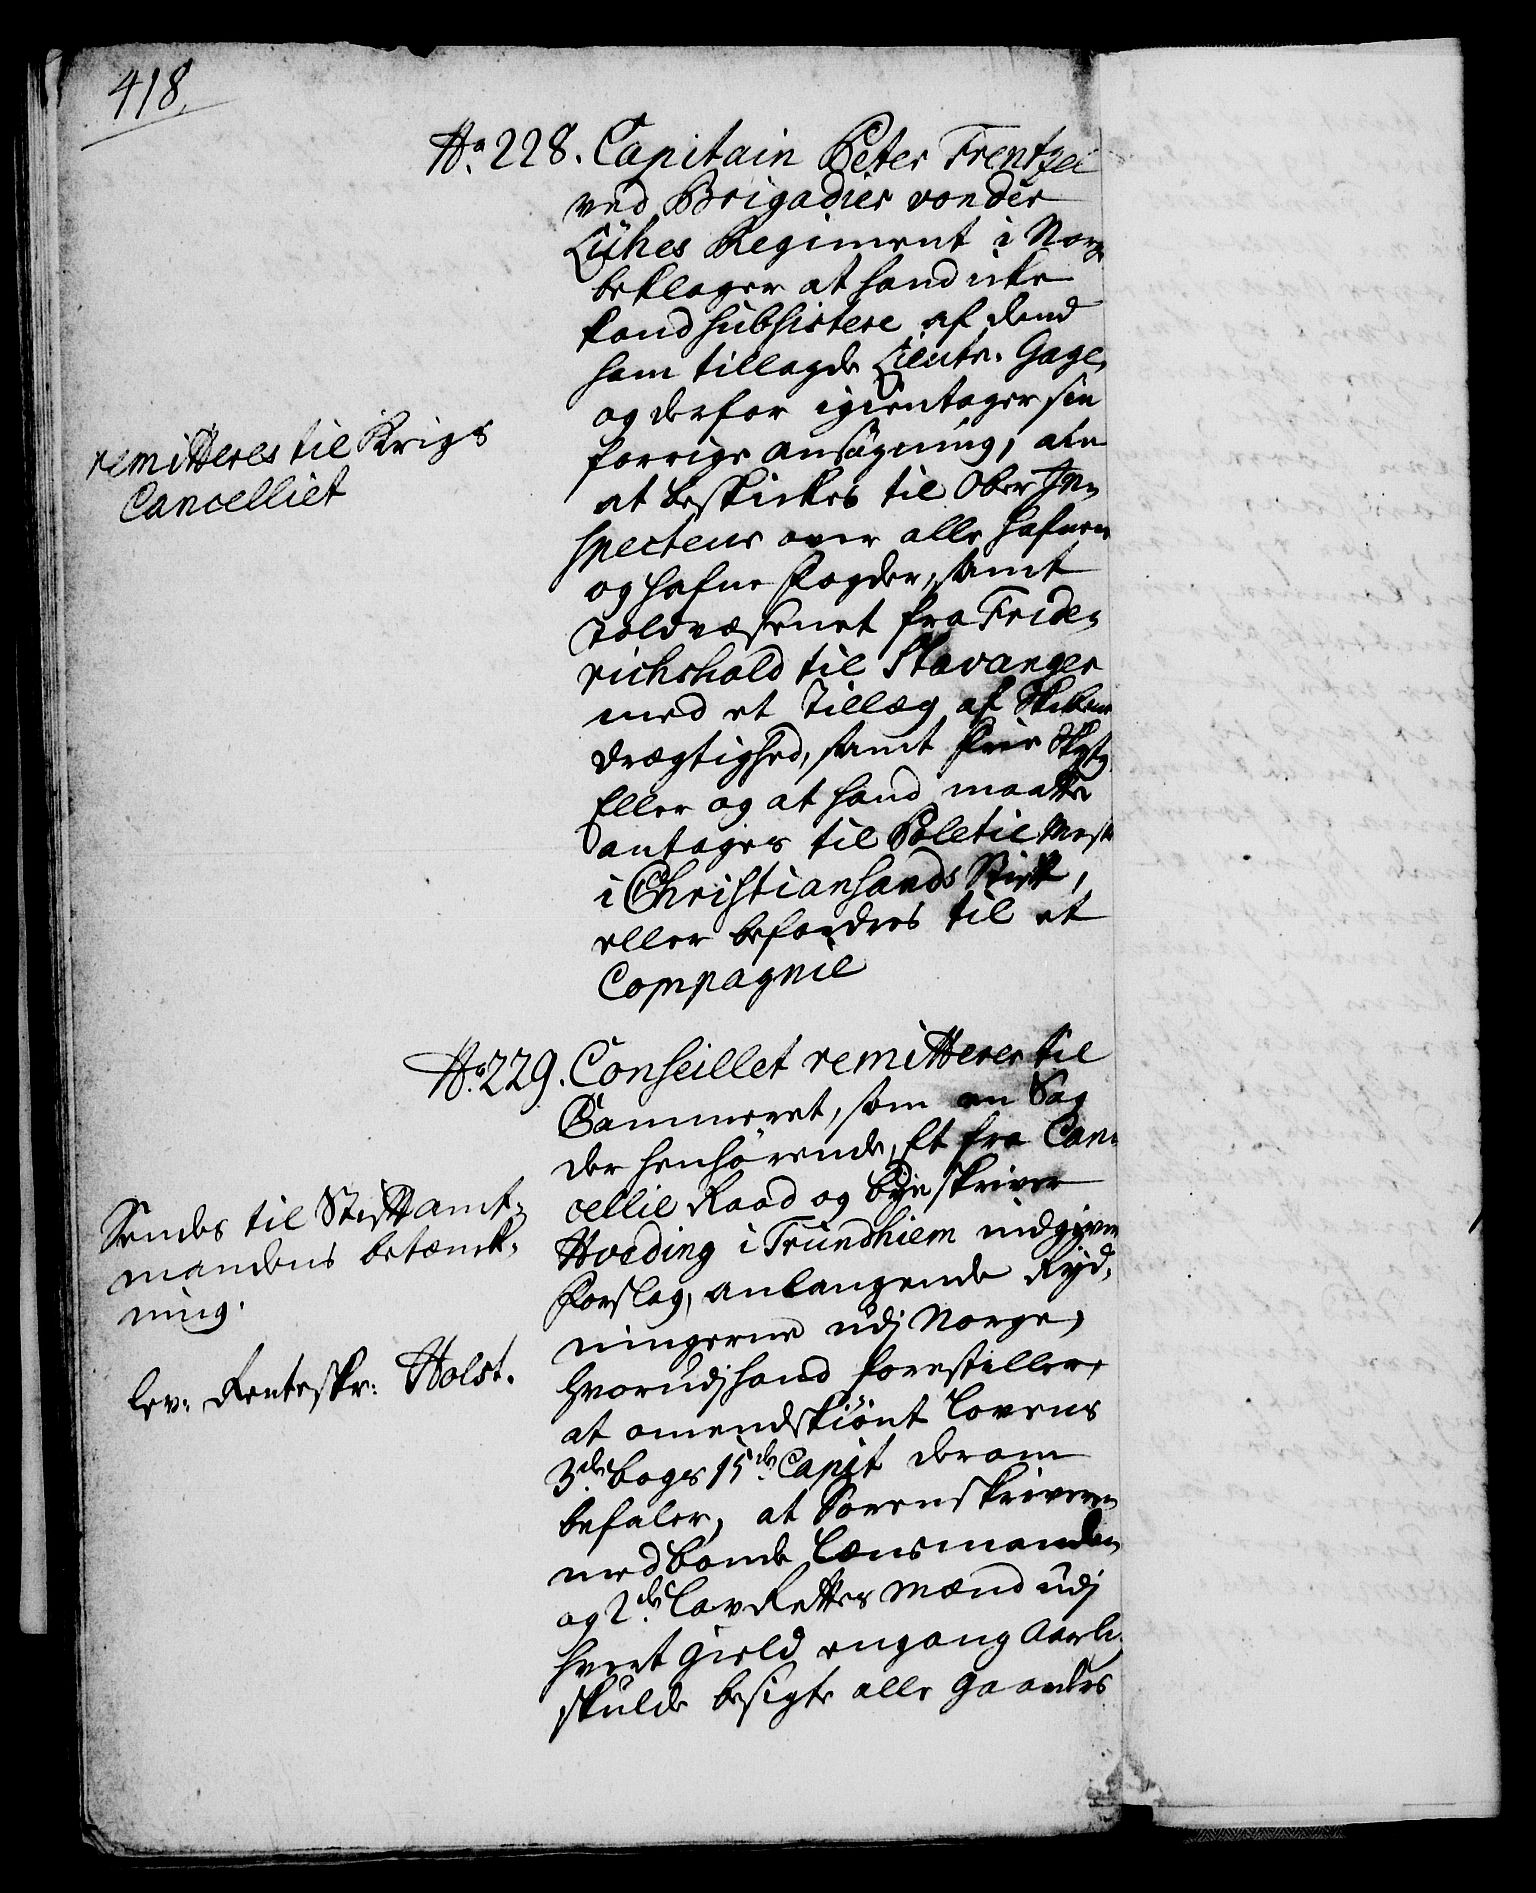 418.
No. 228. Capitain Peter Frentzel
ved Brigadier von der
Lühes Regiment i Norge
beklager at hand icke
kand subsistere af dend
ham tillagde Lieutn. Gage,
og derfor igientager sin
forrige ansøgning, aln
at beskickes til Ober In-
specteur over alle hafner
og hafne fogder, samt
Toldvæsenet fra Fride-
richshald til Stavanger
med et Tillæg af
drægtighed, samt frie Skyts
Eller og at hand maatte
antages til Politie Mest
i Christiansands Stift,
eller befordres til et
Compagnie
remitteres til Krigs
Cancelliet
No. 229. Conseillet remitterer til
Cammeret, som en Sag
der henhørende, Et fra Can-
cellie Raad og byeskriver
Hveding i Trundhiem indgiven
forslag, anlangende Ryd-
ningerne udj Norge,
hvorudj hand forestiller,
at omendskiønt Lovens
3de bogs 15de Capit derom
befaler, at Sorenskriveren
med bonde Lænsmanden
og 2de LavRettes Mænd udj
hvert gield engang Aarl.
skulde besigte alle gaardes
Sendes til Stiftamt-
mandens betænk-
ning.
lev. Renteskr: Holst.